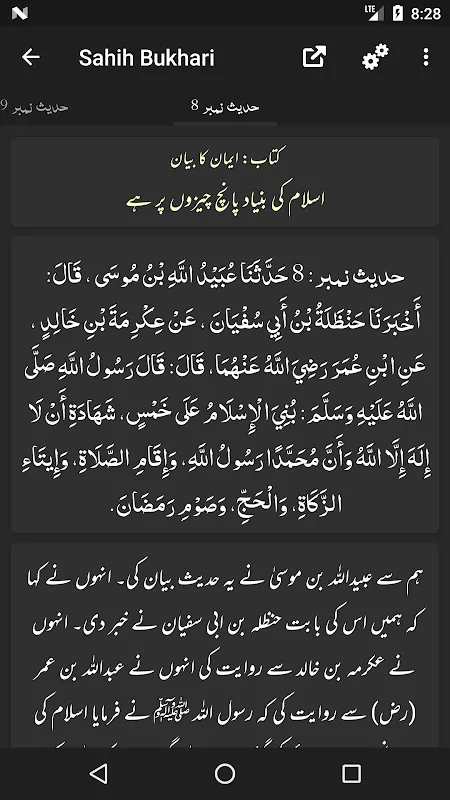 LTE 8:28
Sahih Bukhari
حدیث نمبر 8
حدیث نمبر 9
کتاب: ایمان کا بیان
اسلام کی بنیاد پانچ چیزوں پر ہے
حدیث نمبر : 8 حَدَّثَنَا عُبَيْدُ اللَّهِ بْنُ مُوسَى ، قَالَ:
أَخْبَرَنَا حَنْظَلَةُ بْنُ أَبِي سُفْيَانَ ، عَنْ عِكْرِمَةَ بْنِ خَالِدٍ ،
عَنِ ابْنِ عُمَرَ رَضِيَ اللَّهُ عَنْهُمَا، قَالَ: قَالَ رَسُولُ اللَّهِ صَلَّى
اللَّهُ عَلَيْهِ وَسَلَّمَ: بُنِيَ الْإِسْلَامُ عَلَى خَمْسٍ، شَهَادَةِ أَنْ لَا
إِلَهَ إِلَّا اللَّهُ وَأَنَّ مُحَمَّدًا رَسُولُ اللَّهِ، وَإِقَامِ الصَّلَاةِ، وَإِيتَاءِ
الزَّكَاةِ، وَالْحَجِّ، وَصَوْمِ رَمَضَانَ.
ہم سے عبیداللہ بن موسیٰ نے یہ حدیث بیان کی۔ انہوں نے کہا
کہ ہمیں اس کی بابت حنظلہ بن ابی سفیان نے خبر دی۔ انہوں
نے عکرمہ بن خالد سے روایت کی انہوں نے عبداللہ بن عمر
(رض) سے روایت کی کہ رسول اللہ ﷺ نے فرمایا اسلام کی